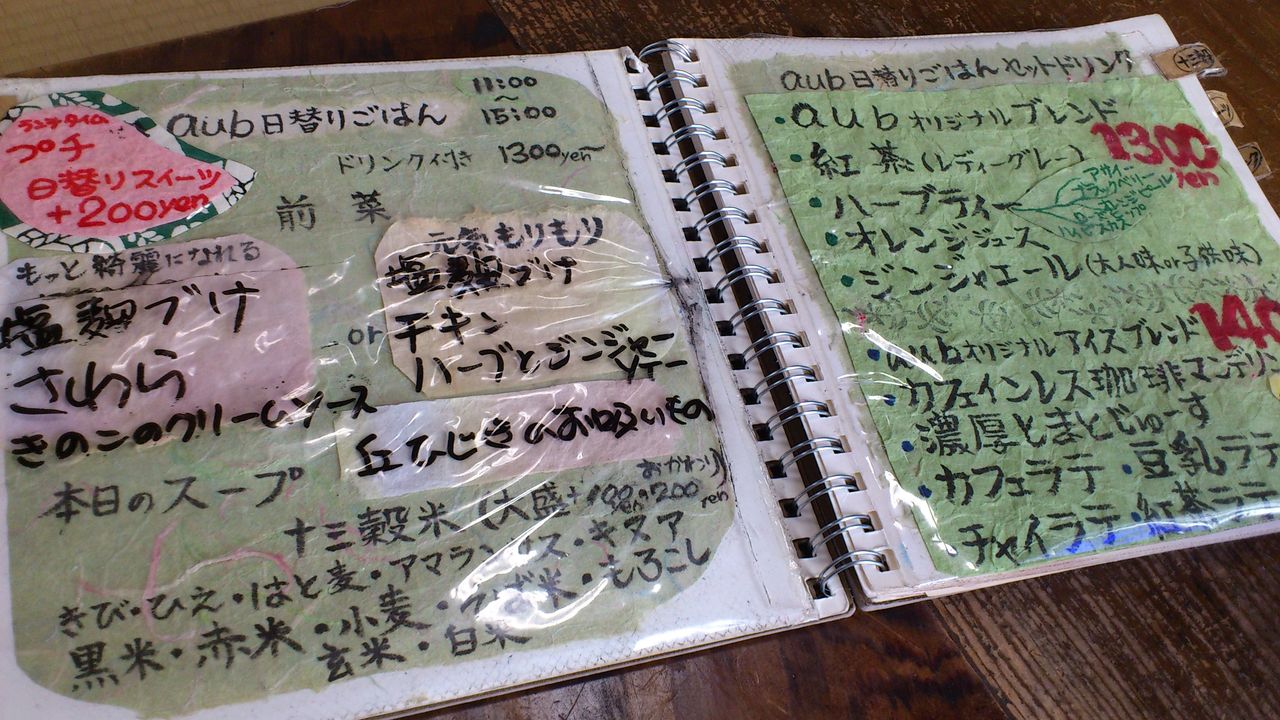 ランチタイム
プチ
日替りスイーツ
+200yen
aub日替りごはん
11:00
〜
15:00
ドリンク付き 1300yen〜
前菜
もっと綺麗になれる
塩麹づけ
さわら
きのこのクリームソース
or
元気もりもり
塩麹づけ
チキン
ハーブとジンジャー
ソテー
本日のスープ
丘ひじきのお吸いもの
おかわり
十三穀米(大盛+100yen 200yen
きび・ひえ・はと麦・アマランサス・キヌア
黒米・赤米・小麦・つぶ米・もろこし
玄米・白米
aub日替りごはんセットドリンク
十三穀
・aubオリジナルブレンド
1300yen
・紅茶(レディーグレー)
・ハーブティー
アサイー
ブラックベリー
ローズヒップ
・オレンジジュース
・ジンジャエール(大人味or子供味)
140
・aubオリジナルアイスブレンド
・カフェインレス珈琲マンデリン
・濃厚とまとじゅーす
・カフェラテ・豆乳ラテ
・チャイラテ・紅茶ラテ